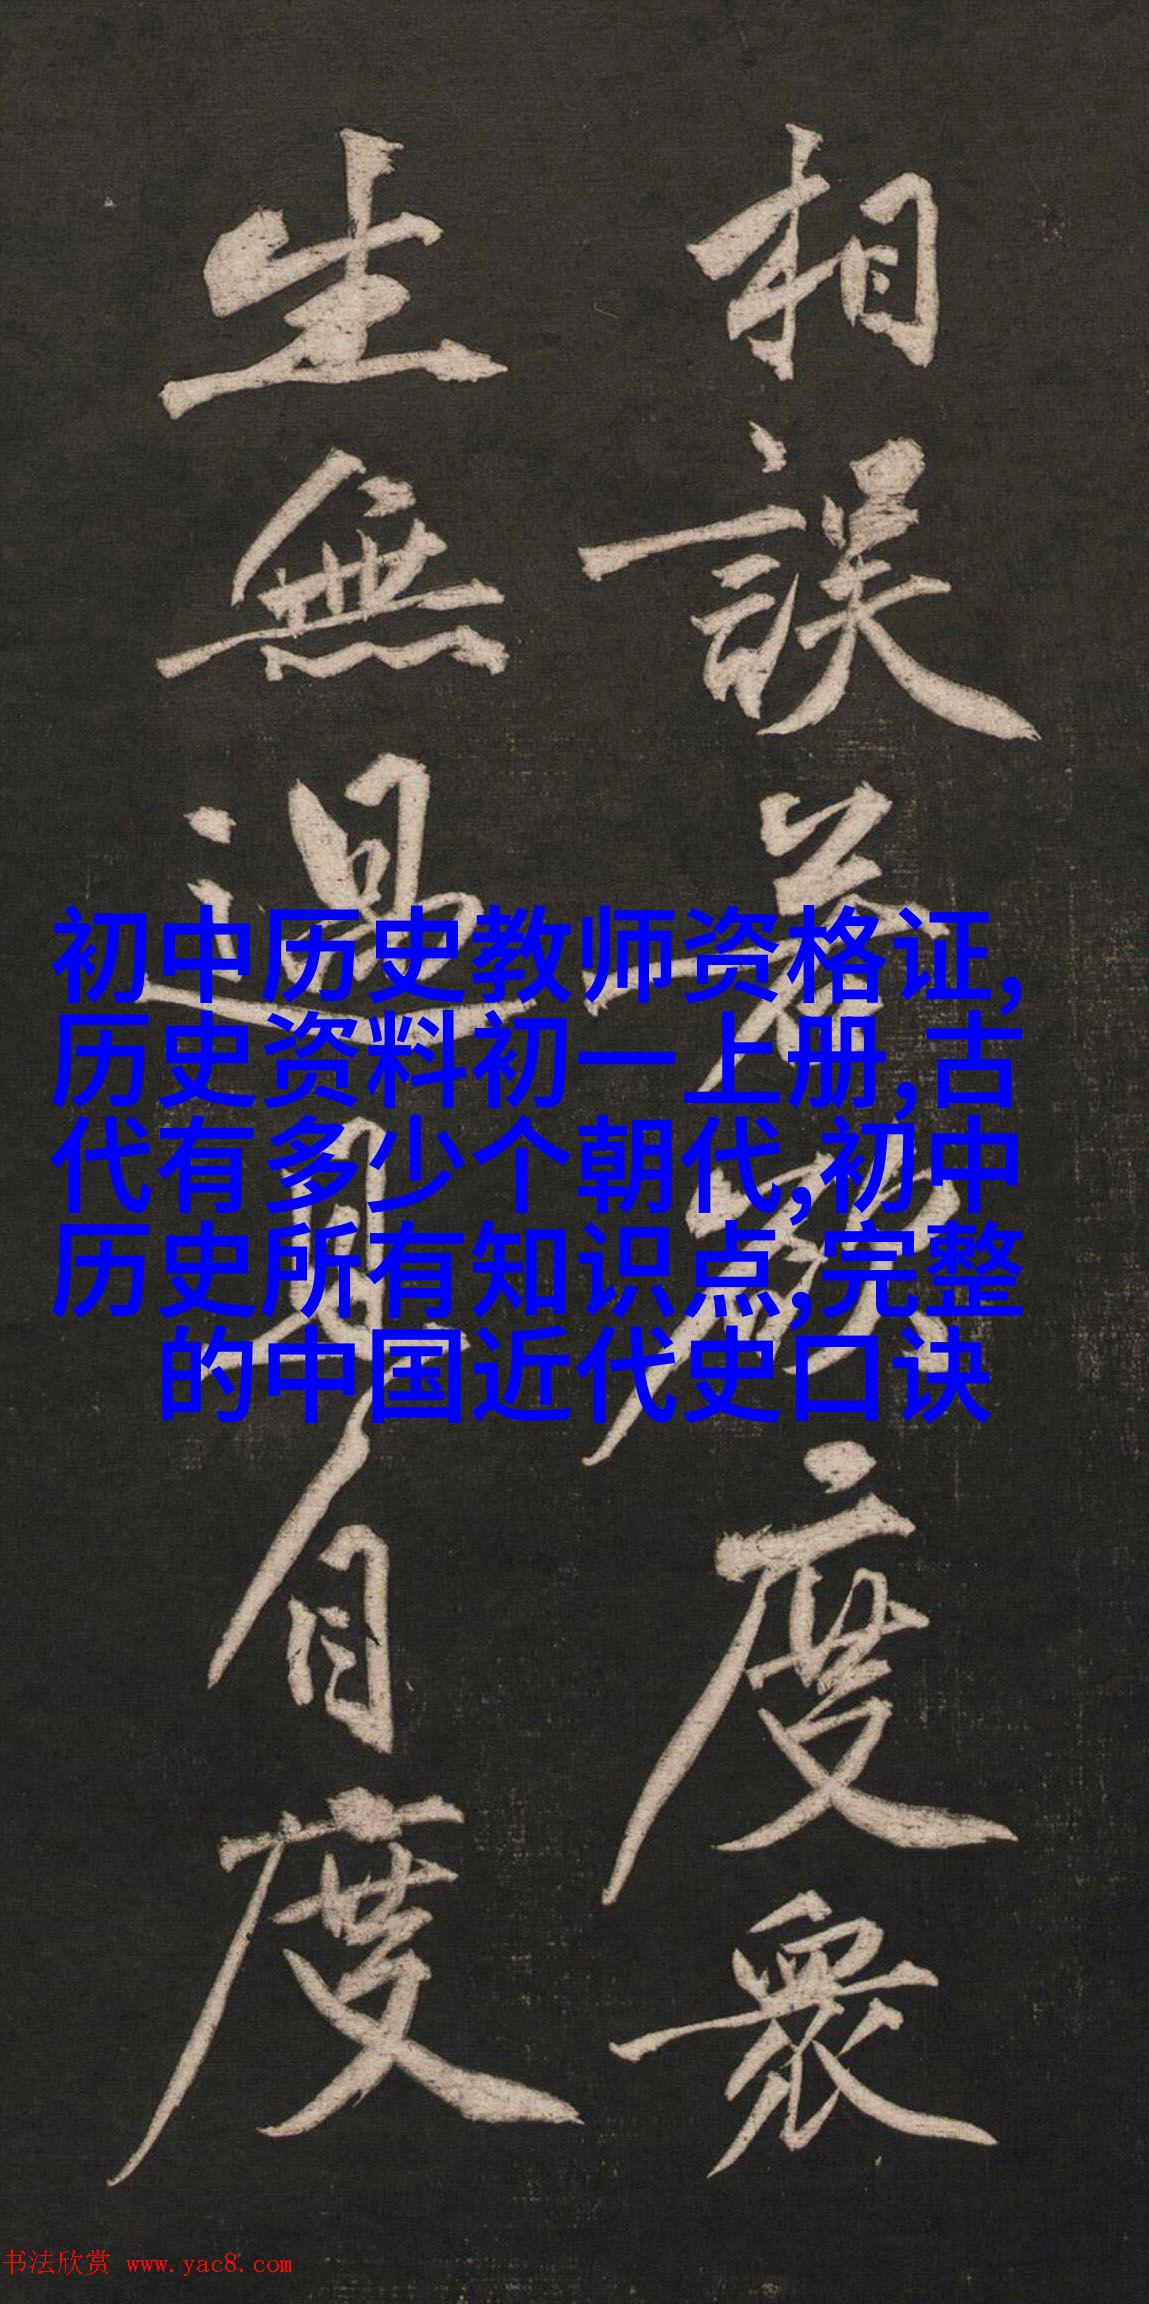 相誤若欲度衆
生無過且自度
初中历史教师资格证,
历史资料初一上册,古
代有多少个朝代,初中
历史所有知识点,完整
的中国近代史口诀
书法欣赏 www.yac8.com